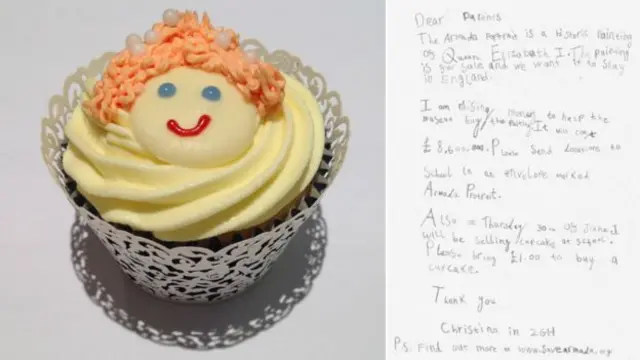 Dear Parents
The Armada Portrait is a historic painting
of Queen Elizabeth I. The painting
is for sale and we want it to stay
in England.
I am raising money to help the
museum buy the painting. It will cost
£8,600,000. Please send donations to
School in an envelope marked
Armada Portrait.
Also = Thursday 30th of June I
will be selling cupcake at school.
Please bring £1.00 to buy a
cupcake.
Thank you
Christina in 2GH
P.s. Find out more